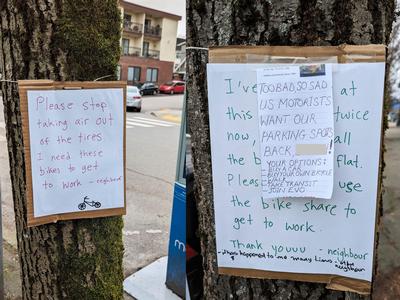 Please stop
taking air out
of the tires.
I need these
bikes to get
to work - neighbour
I've at
this twice
now, all
the b flat.
Pleas use
the bike share to
get to work.
Thank youuu - neighbour
- this happened to me many times - other
neighbour
TOO BAD, SO SAD
US MOTORISTS
WANT OUR
PARKING SPOTS
BACK
YOUR OPTIONS:
- BUY A CAR
- BUY YOUR OWN BICYCLE
- WALK
- TAKE TRANSIT
- JOIN EVO